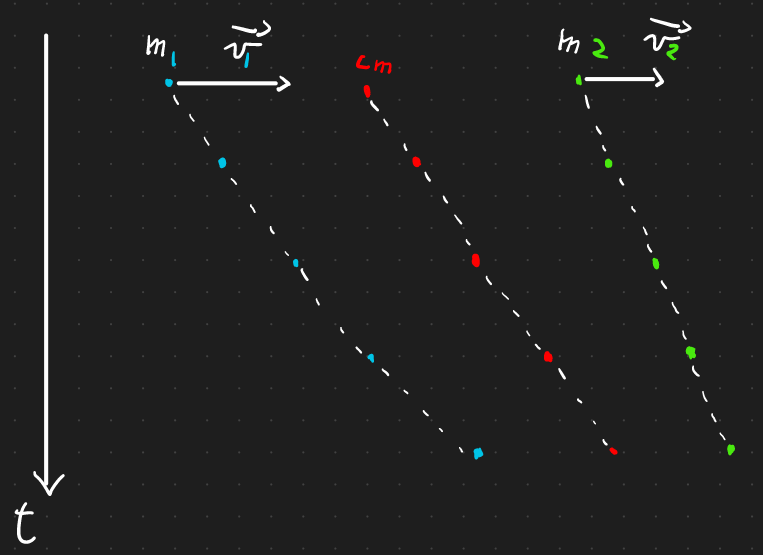 m₁ v⃗₁ cm m₂ v⃗₂
t